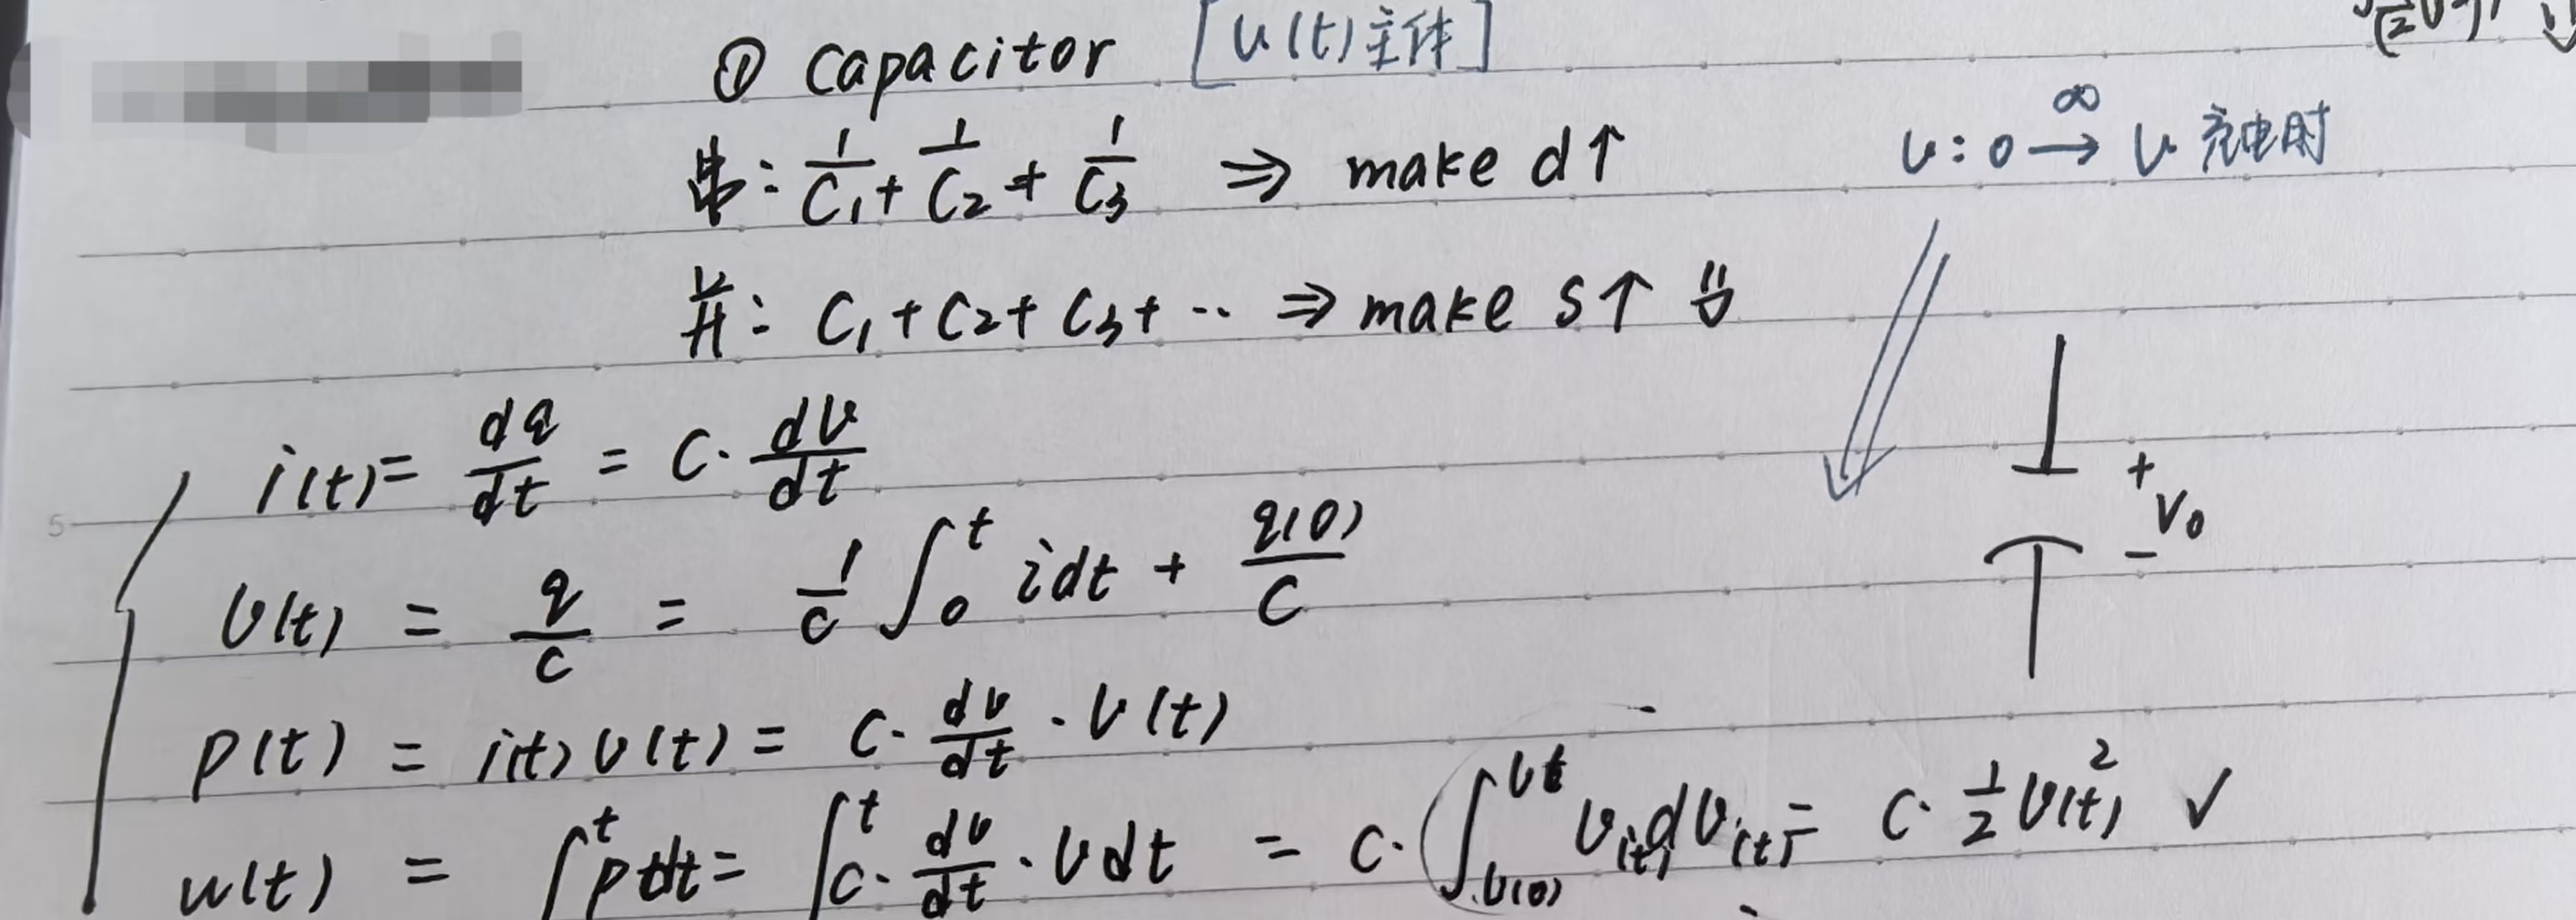 ① capacitor [v(t)主体]
串: 1/C₁ + 1/C₂ + 1/C₃ ⇒ make d↑
v: 0 →^∞ v 充电时
并: C₁ + C₂ + C₃ + ·· ⇒ make s↑
i(t) = dq/dt = C · dv/dt
+
v₀
−
v(t) = q/c = 1/c ∫₀ᵗ i dt + q(0)/C
p(t) = i(t) v(t) = C · dv/dt · v(t)
w(t) = ∫ᵗ p dt = ∫ᵗ C · dv/dt · v dt = C · ∫_{v(0)}^{vt} v(t) dv(t) = C · 1/2 v(t)² ✓
5